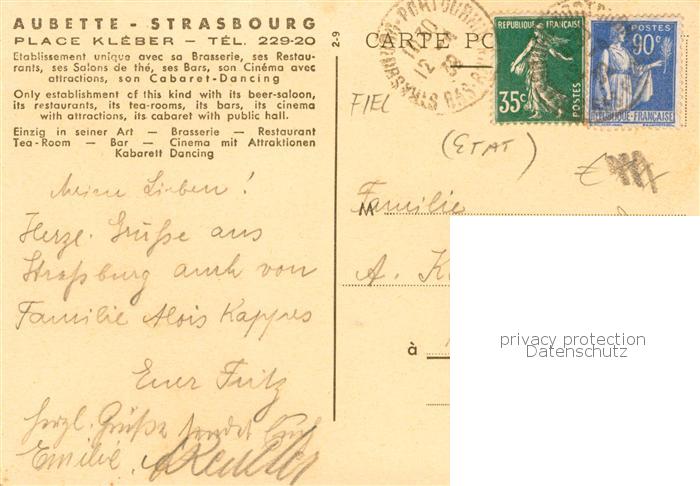 AUBETTE - STRASBOURG
PLACE KLÉBER — TÉL. 229-20
Etablissement unique avec sa Brasserie, ses Restau-
rants, ses Salons de thé, ses Bars, son Cinéma avec
attractions, son Cabaret-Dancing
Only establishment of this kind with its beer-saloon,
its restaurants, its tea-rooms, its bars, its cinema
with attractions, its cabaret with public hall.
Einzig in seiner Art — Brasserie — Restaurant
Tea-Room — Bar — Cinema mit Attraktionen
Kabarett Dancing
Meine Lieben!
Herzl. Grüße aus
Straßburg auch von
Familie Alois Kappes
Euer Fritz
Herzl. Grüße sendet Euch
Emilie.
2-9
CARTE PO
REPUBLIQUE FRANÇAISE
35c
POSTES
POSTES
90c
REPUBLIQUE-FRANÇAISE
FIEL
(ETAT)
Familie
M
A. K
à
privacy protection
Datenschutz